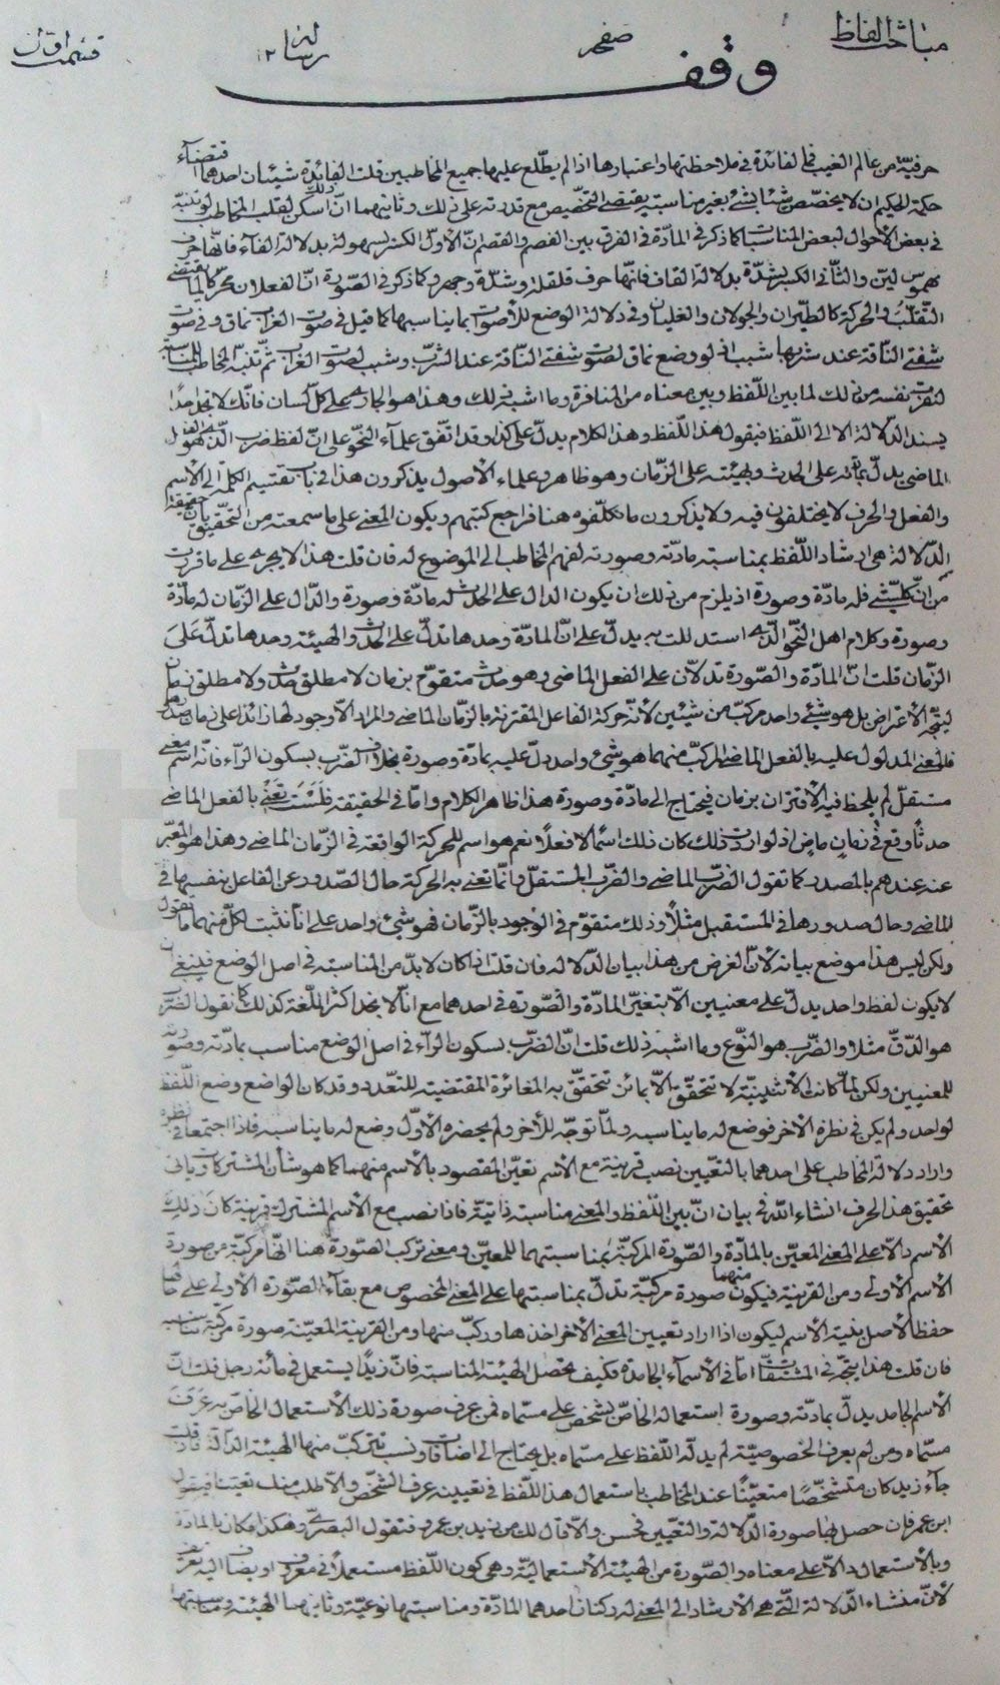 مباحث الفاظ صفحه رساله ١٢ قسمت اول
وقف
حرفيّة من عالم الغيب فما الفائدة في ملاحظتها واعتبارها اذا لم يطّلع عليها جميع المخاطبين قلت الفائدة شيئان احدهما اقتضاء
حكمة الحكيم ان لا يخصّص شيئا بشئ بغير مناسبة يقتضى التخصيص مع قدرته على ذلك وثانيهما انّ ذلك اسكن لقلب المخاطب لو تنبّه
في بعض الاحوال لبعض المناسبات كما ذكر في المادّة في الفرق بين الفصم والقصم انّ الاوّل الكسر بسهولة بدلالة الفاء فانّها حرف
مهموس ليّن والثّاني الكسر بشدّة بدلالة القاف فانّها حرف قلقلة وشدّة وجهر وكما ذكر في الصّورة انّ الفعلان محرّكا لما يقتضى
التقلّب والحركة كالطّيران والجولان والغليان وفي دلالة الوضع للأصوات بما يناسبها كما قيل في صوت الغراب غاق وفي صوت
شفتى النّاقة عند شربها شيب اذ لو وضع غاق لصوت شفتى النّاقة عند الشّرب وشيب لصوت الغراب ثمّ تنبّه المخاطب للمناسبة
لنفرت نفسه من ذلك لما بين اللّفظ وبين معناه من المنافرة وما اشبه ذلك وهذا هو الجارى على كلّ لسان فانّك لا تجد احدًا
يسند الدّلالة الا الى اللّفظ فيقول هذا اللّفظ وهذا الكلام يدلّ على كذا وقد اتّفق علماء النّحو على انّ لفظ ضرب الّذى هو الفعل
الماضى يدلّ بمادّته على الحدث وبهيئته على الزّمان وهو ظاهر وعلماء الأصول يذكرون هذا في باب تقسيم الكلمة الى الاسم
والفعل والحرف لا يختلفون فيه ولا يذكرون ما تكلّفوه هنا فراجع كتبهم ويكون المعنى على ما سمعته من التّحقيق بأنّ حقيقة
الدّلالة هى ارشاد اللّفظ بمناسبة مادّته وصورته لفهم المخاطب الى الموضوع له فان قلت هذا لا يجرى على ما قررت
من انّ كلّ شئ فله مادّة وصورة اذ يلزم من ذلك ان يكون الدّال على الحدث له مادّة وصورة والدّال على الزّمان له مادّة
وصورة وكلام اهل النّحو الّذى استدللت به يدلّ على انّ المادّة وحدها تدلّ على الحدث والهيئة وحدها تدلّ على
الزّمان قلت انّ المادّة والصّورة تدلّان على الفعل الماضى وهو حدث متقوّم بزمان لا مطلق حدث ولا مطلق زمان
ليتّجه الأعتراض بل هو شئ واحد مركّب من شيئين لأنّه حركة الفاعل المقترنة بالزّمان الماضى والمراد الّا وجود لها زائدا على زمان صدورها
فالمعنى المدلول عليه بالفعل الماضى المركّب منهما هو شئ واحد دلّ عليه بمادّة وصورة بخلاف الضّرب بسكون الرّاء فانّه اسم معنى
مستقلّ لم يلحظ فيه الاقتران بزمان فيحتاج الى مادّة وصورة هذا ظاهر الكلام وامّا في الحقيقة فلست تعنى بالفعل الماضى
حدثًا وقع في زمانٍ ماضٍ اذ لو اردت ذلك كان ذلك اسمًا لا فعلًا نعم هو اسم للحركة الواقعة في الزّمان الماضى وهذا هو المعبّر
عنه عندهم بالمصدر كما تقول الضّرب الماضى والضّرب المستقلّ وانّما تعنى به الحركة حال الصّدور عن الفاعل بنفسها في
الماضى وحال صدورها في المستقبل مثلًا وذلك متقوّم في الوجود بالزّمان فهو شئ واحد على انّا نثبت لكلّ منهما ما نقول
ولكن ليس هذا موضع بيانه لأنّ الغرض من هذا بيان الدّلالة فان قلت اذا كان لا بدّ من المناسبة في اصل الوضع فينبغى ان
لا يكون لفظ واحد يدلّ على معنيين الّا بتغيّر المادّة والصّورة في احدهما مع انّا لا نجد اكثر اللّغة كذلك كما تقول الضّرب
هو الدّقّ مثلا والضّرب هو النّوع وما اشبه ذلك قلت انّ الضّرب بسكون الرّاء في اصل الوضع مناسب بمادّته وصورته
للمعنيين ولكن لمّا كانت الأثنينيّة لا تتحقّق الّا بمائز تتحقّق به المغائرة المقتضية للتّعدد وقد كان الواضع وضع اللّفظ
لواحد ولم يكن في نظره الأخر فوضع له ما يناسبه ولمّا توجّه للأخر ولم يحضره الأوّل وضع له ما يناسبه فاذا اجتمعا في نظره
واراد دلالة المخاطب على احدهما بالتّعيين نصب قرينة مع الاسم تعيّن المقصود بالأسم منهما كما هو شأن المشتركات ويأتى
تحقيق هذا الحرف انشاء اللّه في بيان انّ بين اللّفظ والمعنى مناسبة ذاتيّة فاذا نصب مع الأسم المشترك قرينة كان ذلك
الأسم دالّا على المعنى المعيّن بالمادّة والصّورة المركّبة بمناسبتهما للمعيّن ومعنى تركّب الصّورة هنا انّها مركّبة من صورة
الأسم الأولى ومن القرينة فيكون منهما صورة مركّبة تدلّ بمناسبتها على المعنى المخصوص مع بقاء الصّورة الأولى على حالها
حفظا لأصل بنية الاسم ليكون اذا اراد تعيين المعنى الأخر اخذها وركّب منها ومن القرينة المعيّنة صورة مركّبة تناسبه
فان قلت هذا يتّجه في المشتقّات امّا في الأسماء الجامدة فكيف تحصل الهيئة المناسبة فانّ زيدًا يستعمل في مائة رجل قلت انّ
الأسم الجامد يدلّ بمادّته وصورة استعماله الخاصّ بشخص على مسمّاه فمن عرف صورة ذلك الأستعمال الخاصّ به عرف
مسمّاه ومن لم يعرف الخصوصيّة لم يدلّه اللّفظ على مسمّاه بل يحتاج الى اضافات ونسب تتركّب منها الهيئة الدّالّة فاذا قلت
جاء زيد كان متشخّصًا متعيّنًا عند المخاطب باستعمال هذا اللّفظ في تعيينه عرف الشخّص والّا طلب منك تعيينا فيقول
ابن عمر فان حصل بها صورة الدّلالة والتّعيين فحسن والّا قال لك من زيد بن عمرو فتقول البصرى وهكذا فكان بالمادّة
وبالأستعمال دالّا على معناه والصّورة من الهيئة الأستعماليّة وهى كون اللّفظ مستعملًا في معروف او يضاف اليه تعريف
لأنّ منشاء الدّلالة الّتى هى الأرشاد الى المعنى له ركنان احدهما المادّة ومناسبتها نوعيّة وثانيهما الهيئة ومناسبتها